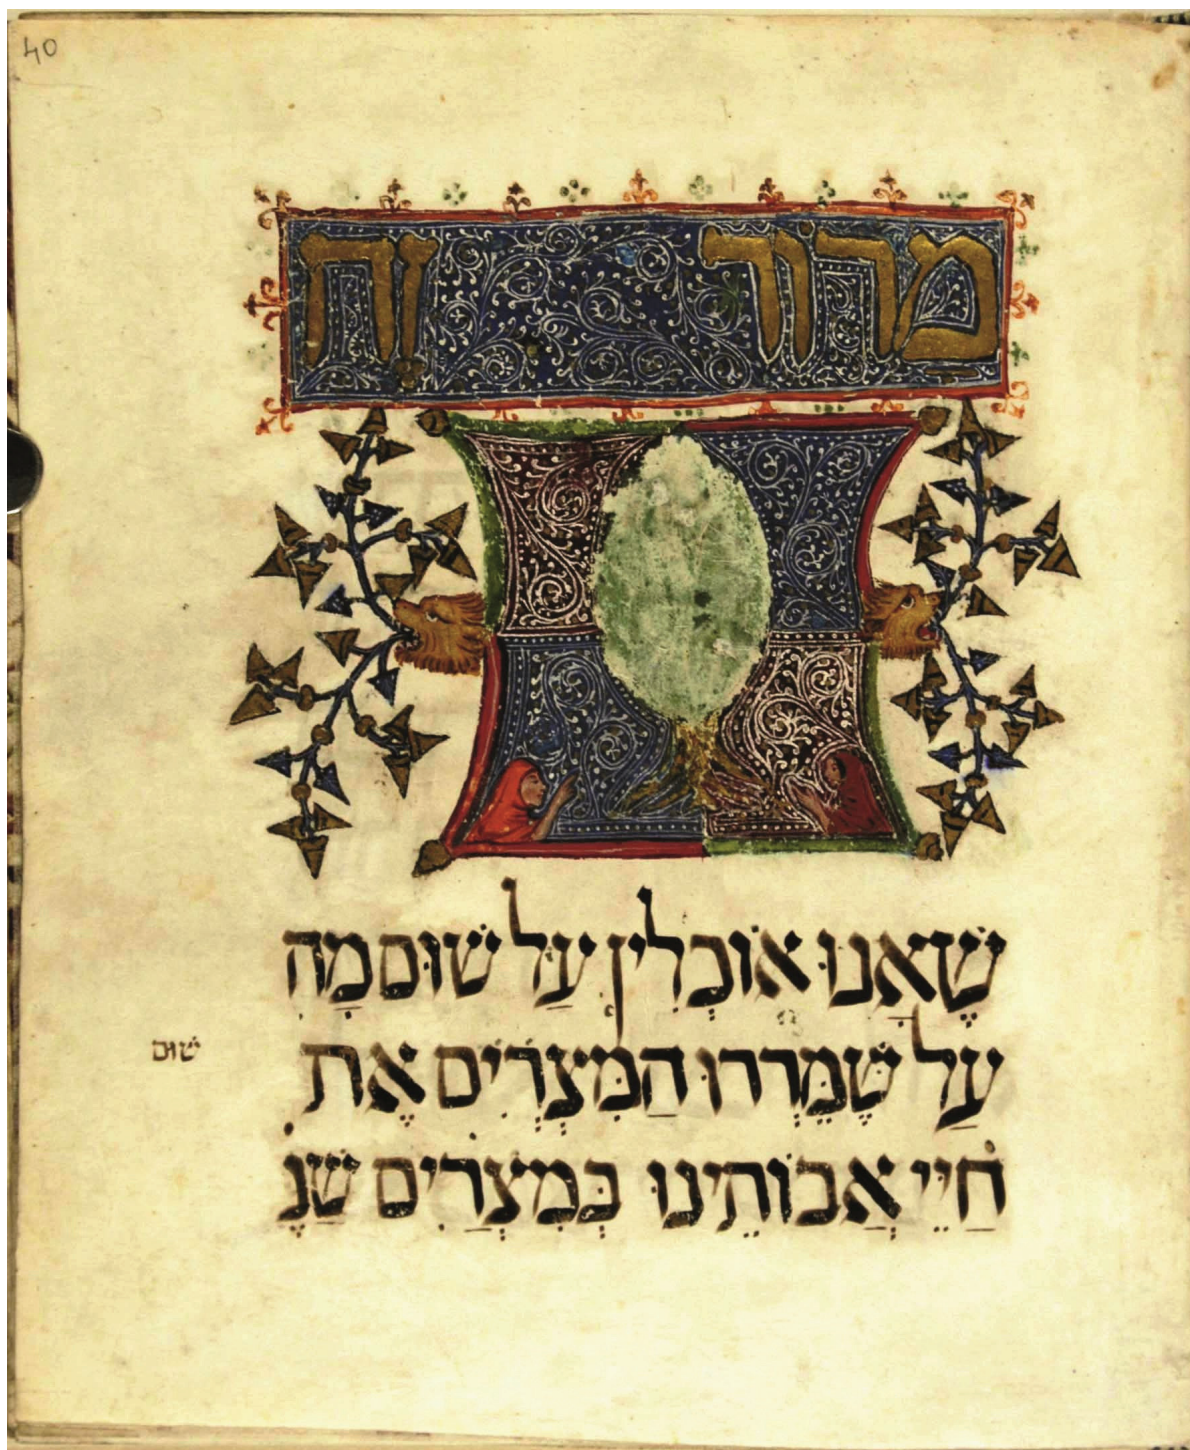 40
מרור זה
שֶׁאָנוּ אוֹכְלִין עַל שׁוּם מָה
עַל שֶׁמֵּרְרוּ הַמִּצְרִים אֶת
שׁוּם
חַיֵּי אֲבוֹתֵינוּ בְּמִצְרַיִם שַׁנֶ